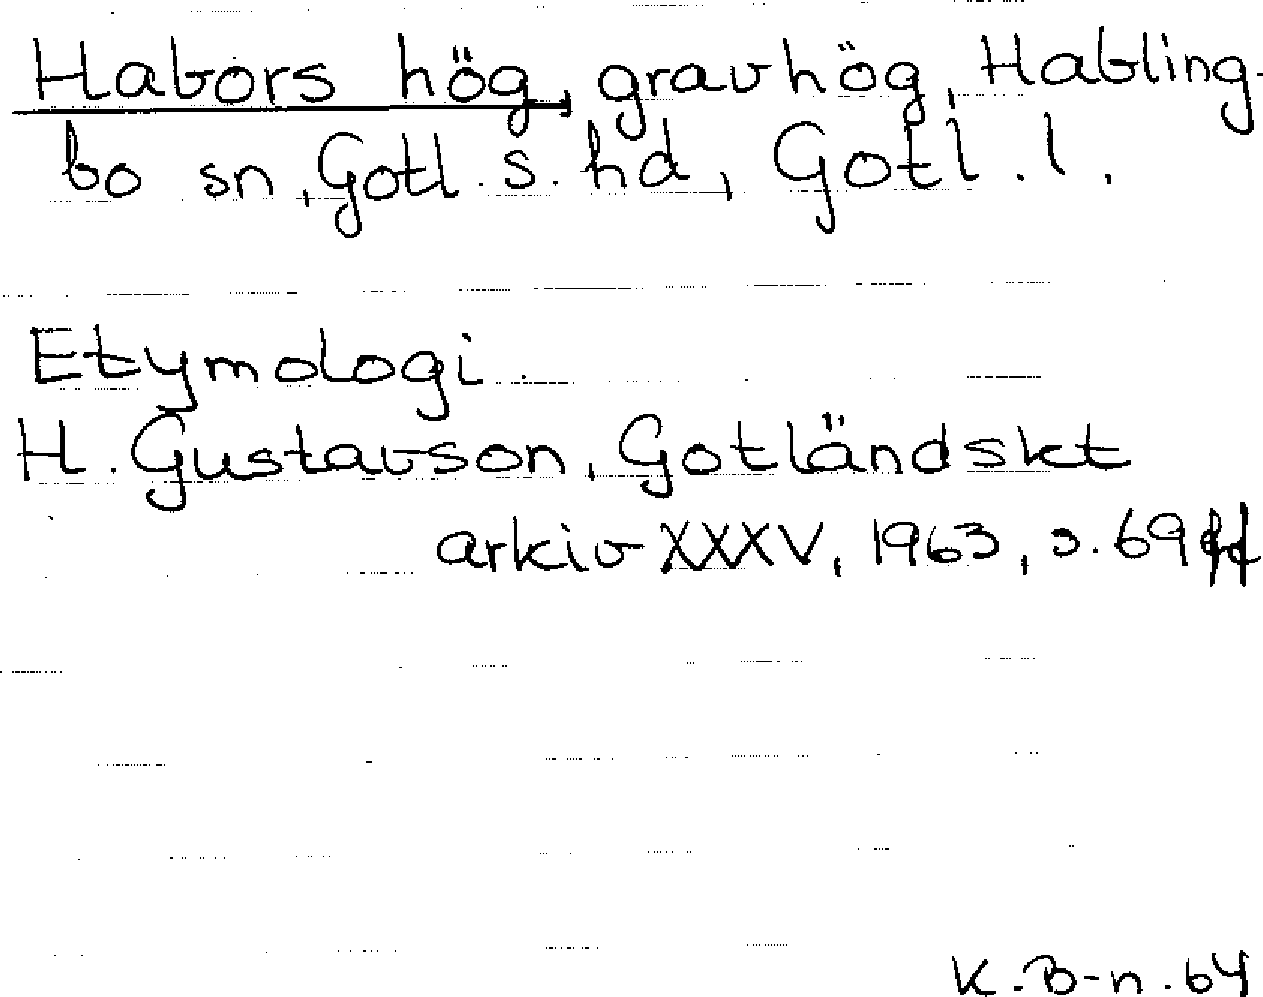 Habors hög, gravhög, Habling-
bo sn, Gotl. s. hd, Gotl. l.
Etymologi
H. Gustavson, Gotländskt
arkiv XXXV, 1963, s. 69 ff
K. B-n. 64